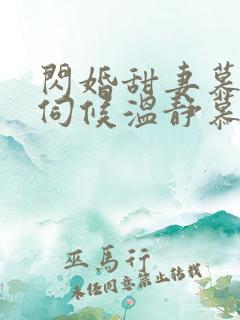 閃婚甜妻慕
伺候溫靜慕
巫馬行
未經同意禁止轉載